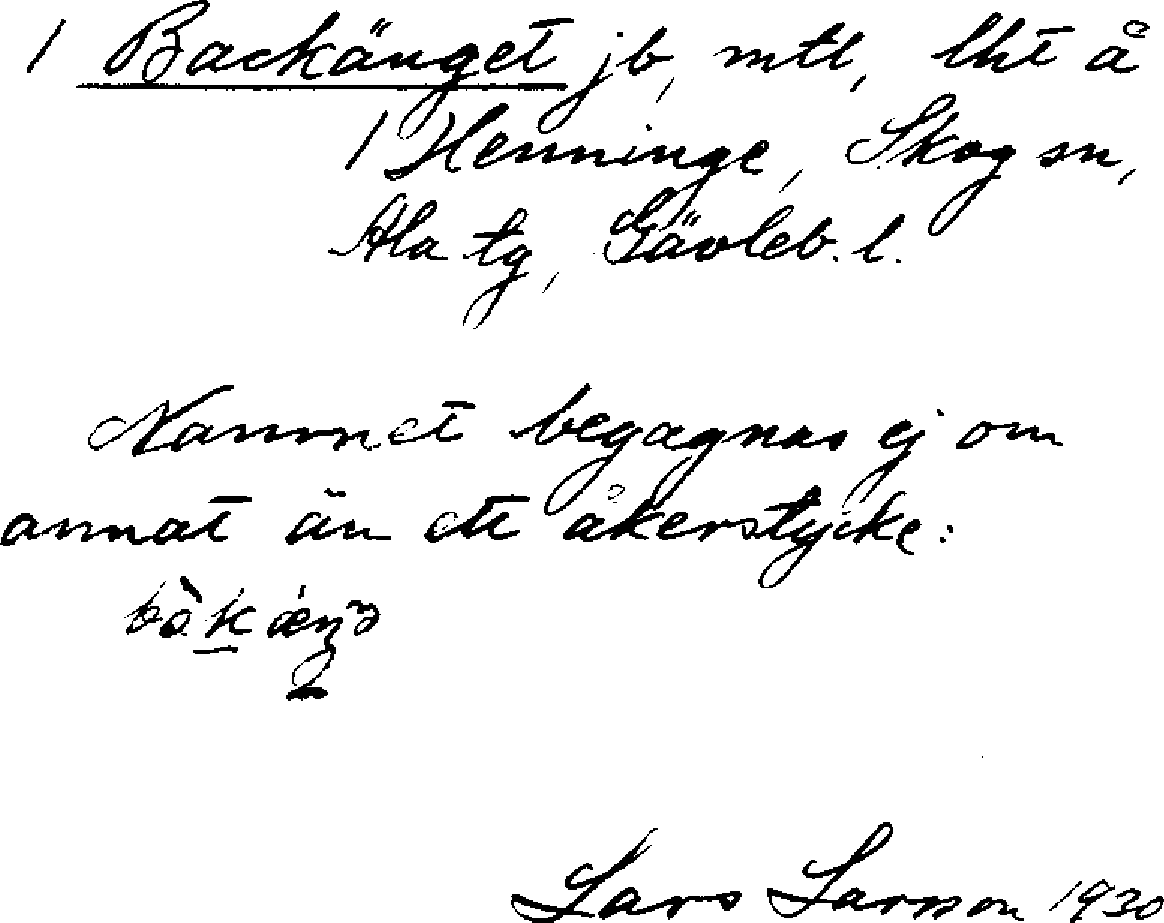 1 Backänget jb, mtl, lht å
1 Henninge, Skog sn,
Ala tg, Gävleb. l.
Namnet begagnas ej om
annat än ett åkerstycke:
Lars Larsson 1930